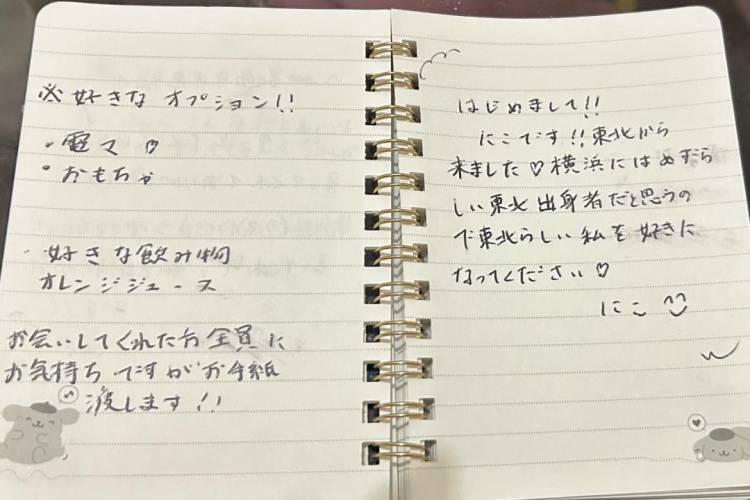 ※好きなオプション!!
・電マ♡
・おもちゃ
・好きな飲み物
オレンジジュース
お会いしてくれた方全員に
お気持ちですがお手紙
渡します!!
はじめまして!!
にこです!!東北から
来ました♡横浜にはめずら
しい東北出身者だと思うの
で東北らしい私を好きに
なってください♡
にこ